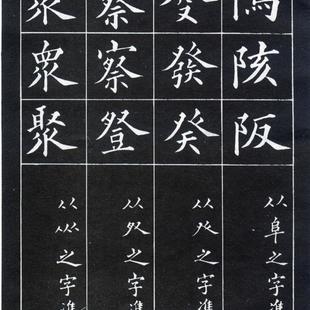 陔阪
从阜之字準
發癸
从癶之字準
察登
从之字準
眾聚
从㐺之字準